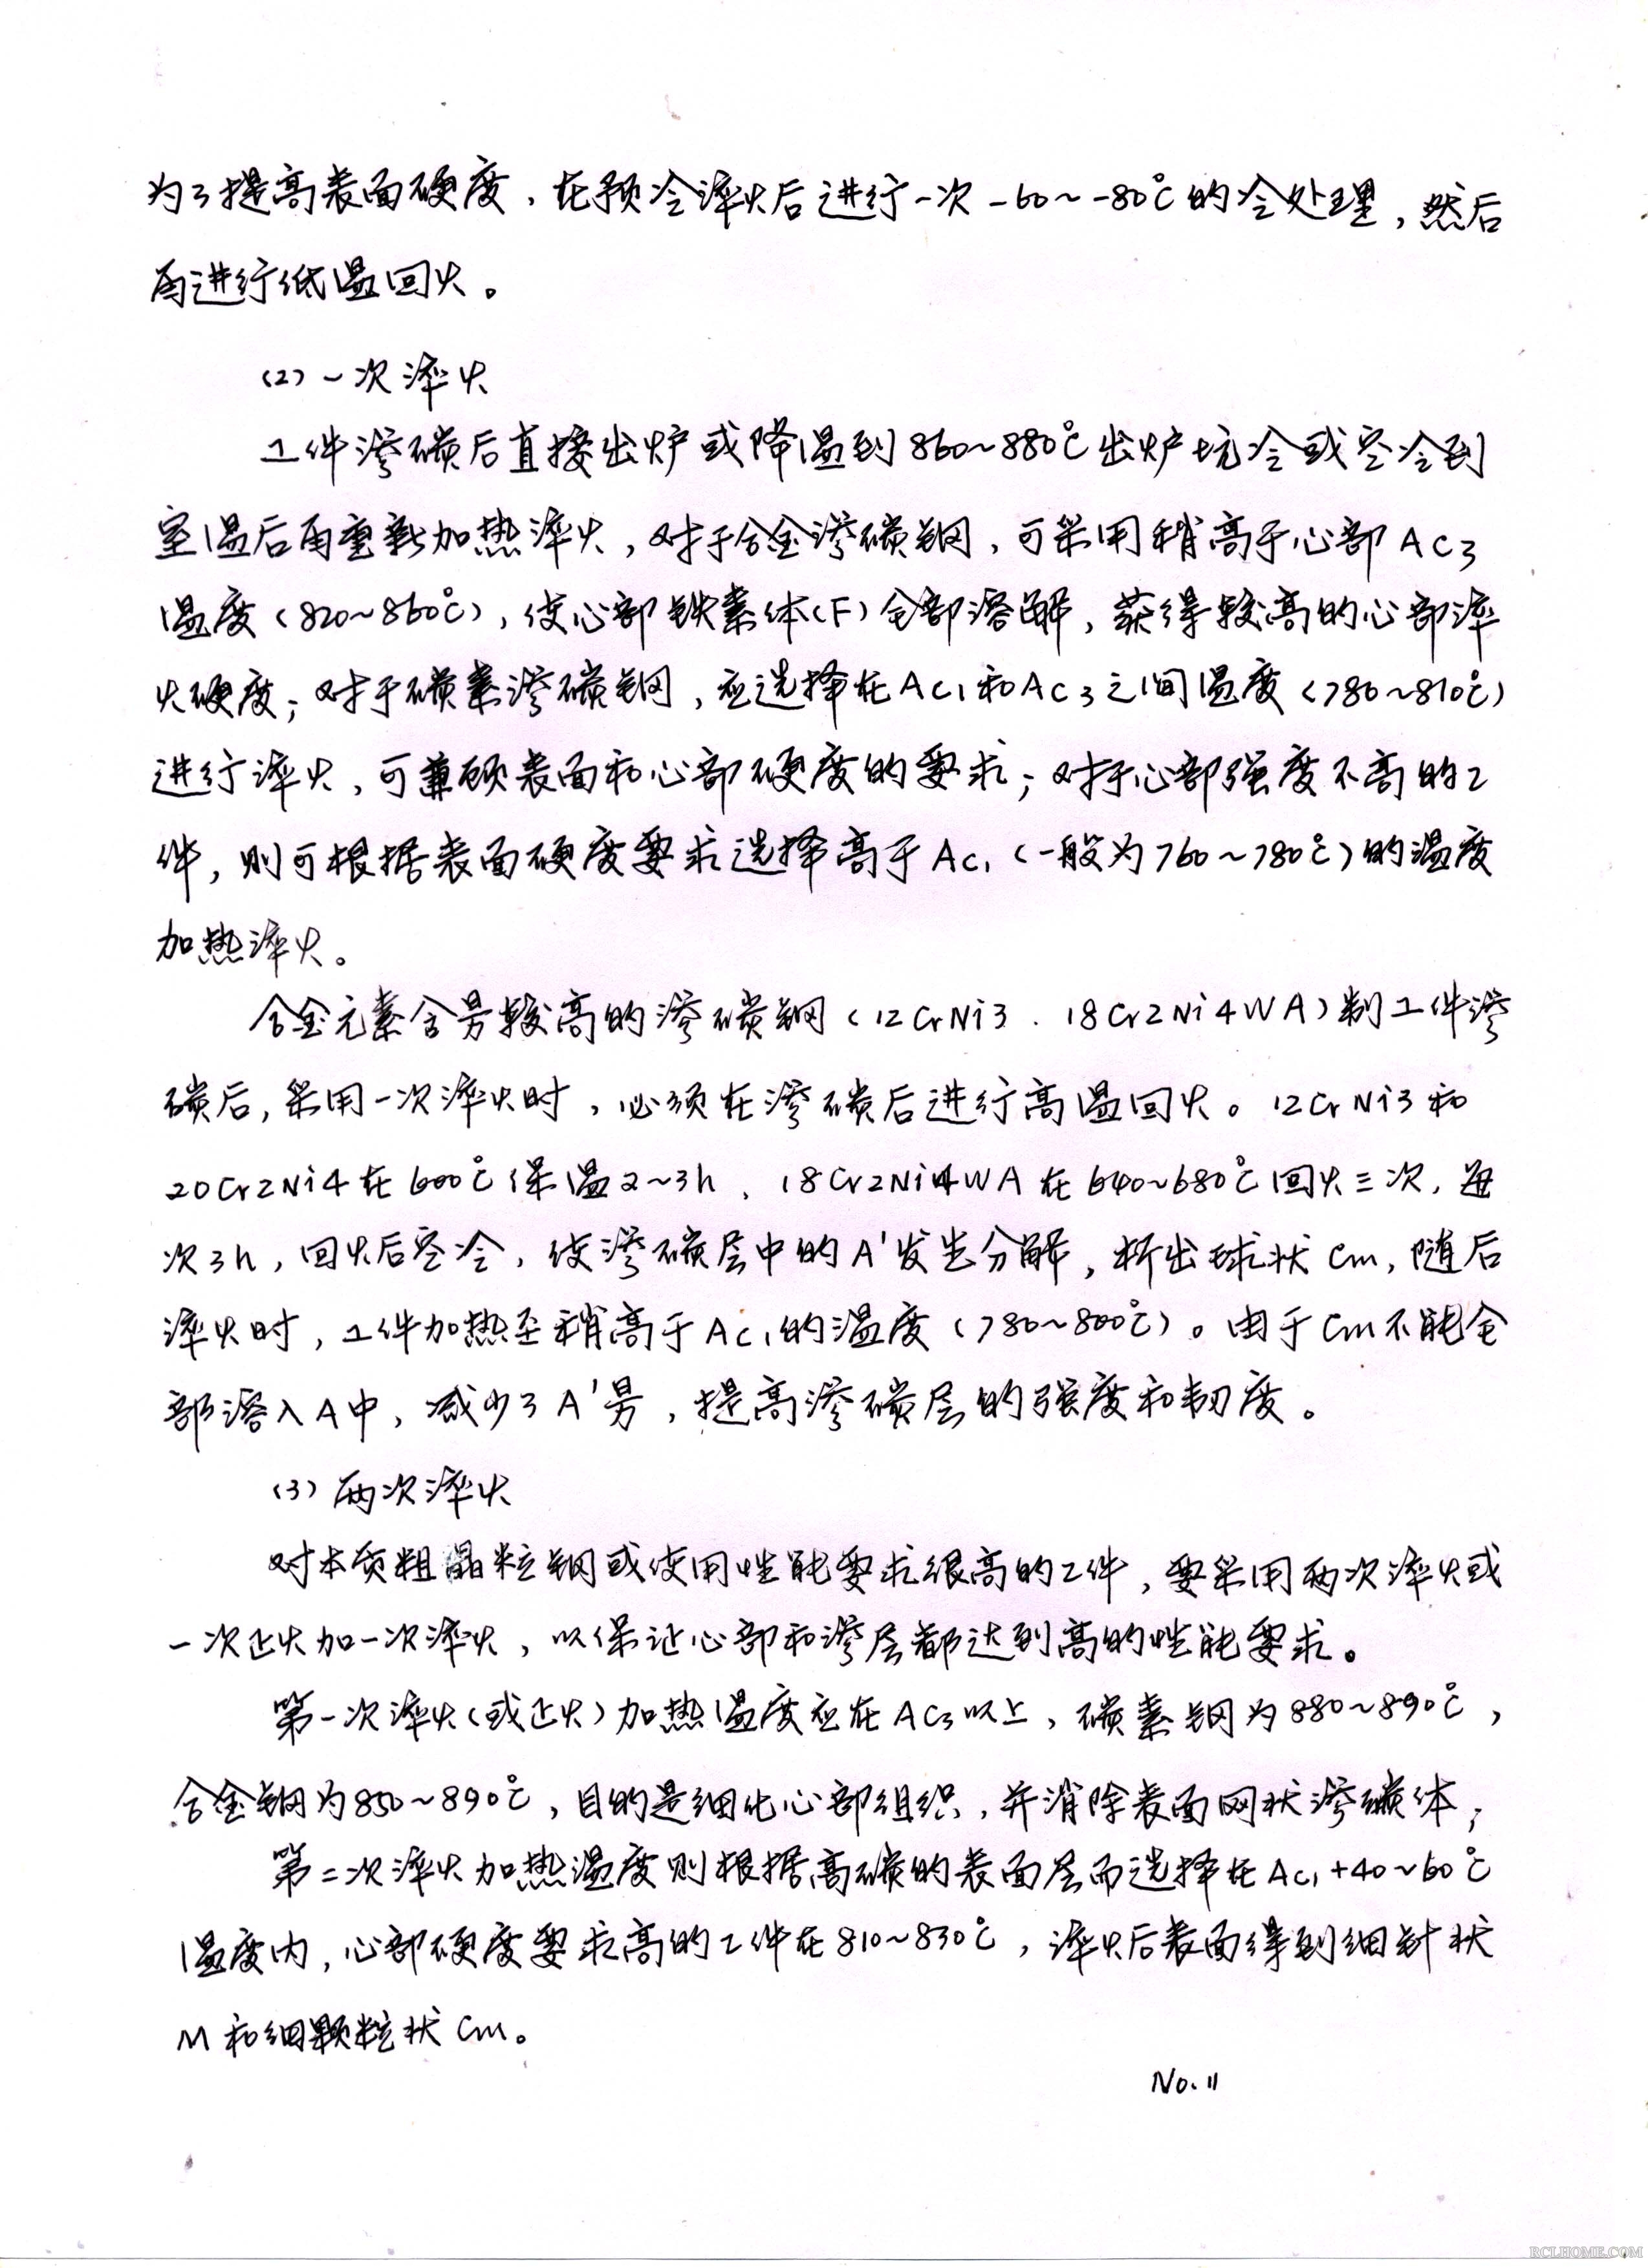 为了提高表面硬度，在预冷淬火后进行一次-60～-80℃的冷处理，然后
再进行低温回火。
（2）一次淬火
工件渗碳后直接出炉或降温到860～880℃出炉坑冷或空冷到
室温后再重新加热淬火，对于合金渗碳钢，可采用稍高于心部AC3
温度（820～860℃），使心部铁素体（F）全部溶解，获得较高的心部淬
火硬度；对于碳素渗碳钢，应选择在AC1和AC3之间温度（780～810℃）
进行淬火，可兼顾表面和心部硬度的要求；对于心部强度不高的工
件，则可根据表面硬度要求选择高于Ac1（一般为760～780℃）的温度
加热淬火。
合金元素含量较高的渗碳钢（12CrNi3、18Cr2Ni4WA）制工件渗
碳后，采用一次淬火时，必须在渗碳后进行高温回火。12CrNi3和
20Cr2Ni4在600℃保温2～3h，18Cr2Ni4WA在640～680℃回火三次，每
次3h，回火后空冷，使渗碳层中的A'发生分解，析出球状Cm，随后
淬火时，工件加热至稍高于Ac1的温度（780～800℃）。由于Cm不能全
部溶入A中，减少了A'量，提高渗碳层的强度和韧度。
（3）两次淬火
对本质粗晶粒钢或使用性能要求很高的工件，要采用两次淬火或
一次正火加一次淬火，以保证心部和渗层都达到高的性能要求。
第一次淬火（或正火）加热温度应在AC3以上，碳素钢为880～890℃，
合金钢为850～890℃，目的是细化心部组织，并消除表面网状渗碳体；
第二次淬火加热温度则根据高碳的表面层而选择在Ac1+40～60℃
温度内，心部硬度要求高的工件在810～830℃，淬火后表面得到细针状
M和细颗粒状Cm。
No.11
RCLHOME.COM